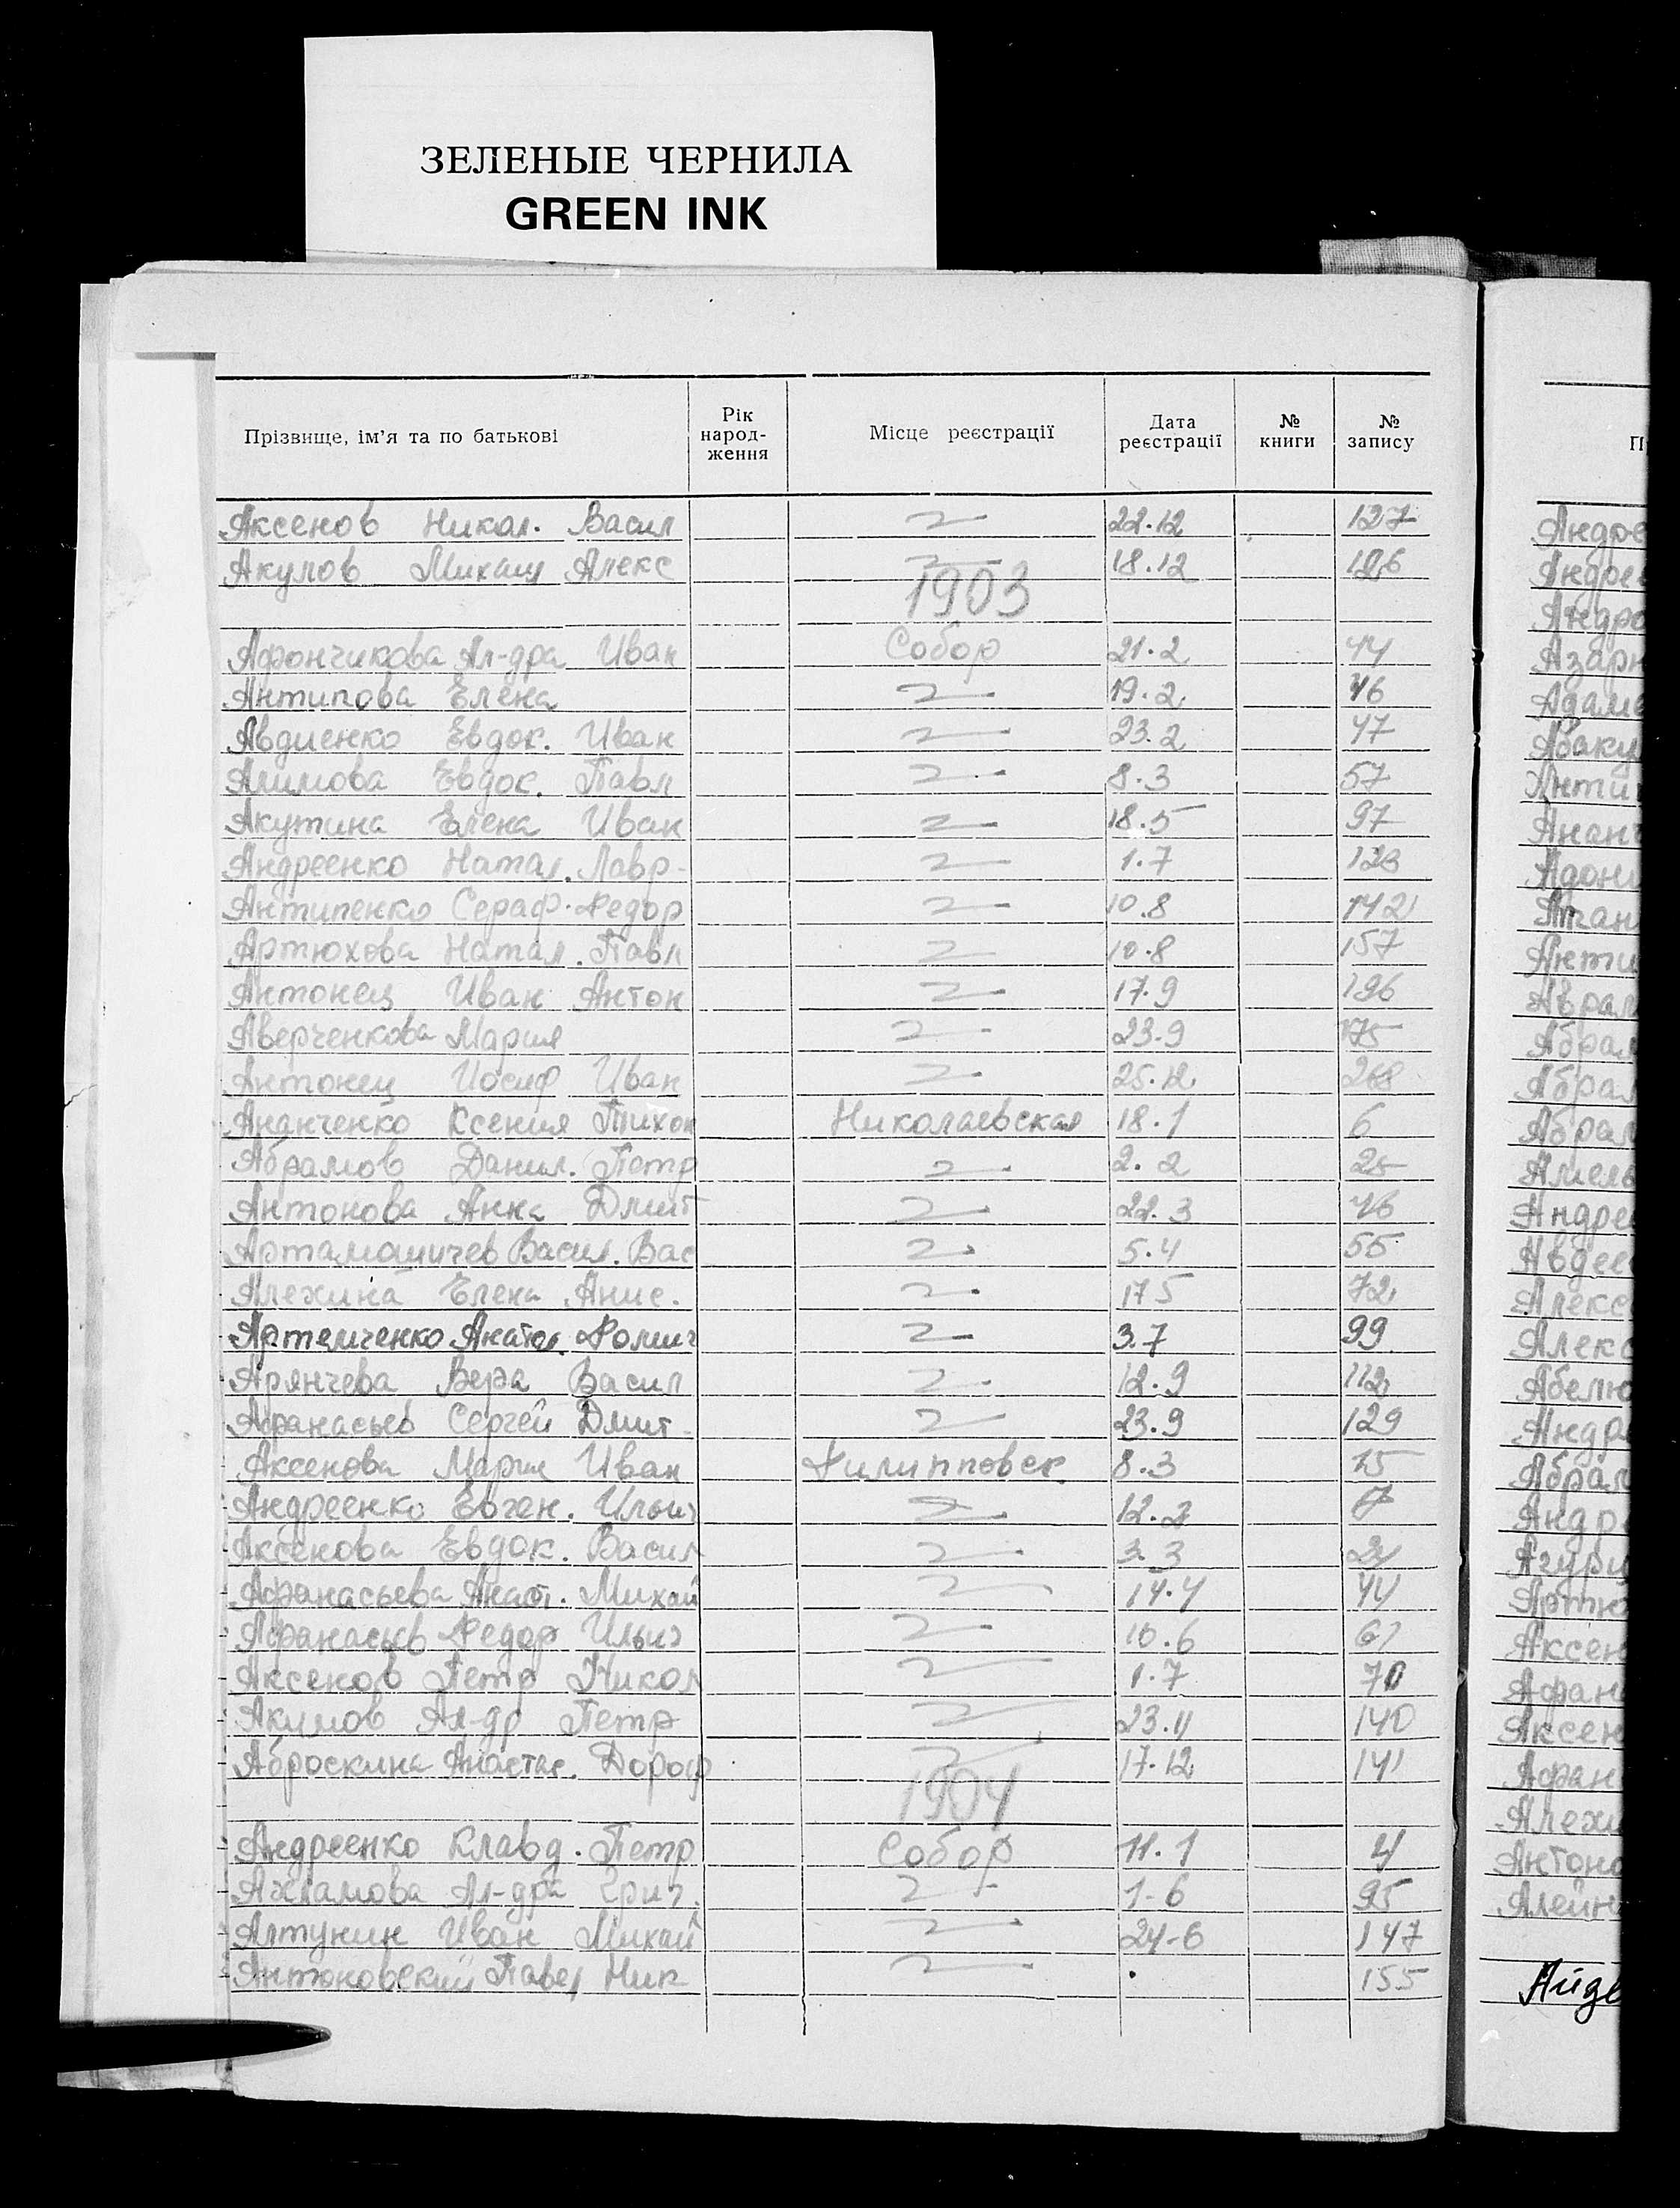 ЗЕЛЕНЫЕ ЧЕРНИЛА
GREEN INK
Прізвище, ім'я та по батькові
Рік народ-ження
Місце реєстрації
Дата реєстрації
№ книги
№ запису
Аксенов Никол. Васил 22.12 127
Акулов Михаил Алекс 18.12 126
1903
Афончикова Ал-дра Иван Собор 21.2 44
Антипова Елена 19.2 46
Авдиенко Евдок. Иван 23.2 47
Алимова Евдок. Павл 8.3 57
Акутина Елена Иван 18.5 97
Андреенко Натал. Лавр- 1.7 123
Антипенко Сераф. Федор 10.8 142
Артюхова Натал. Павл 10.8 157
Антонец Иван Антон 17.9 196
Аверченкова Мария 23.9 175
Антонец Иосиф Иван 25.12 268
Ананченко Ксения Тихон Николаевская 18.1 6
Абрамов Данил. Петр 2.2 25
Антонова Анна Дмит 22.3 46
Артамошичев Васил. Вас 5.4 55
Алехина Елена Анис. 17 5 72
Артемченко Анатол. Фомич 3.7 99
Арянчева Вера Васил 12.9 112
Афанасьев Сергей Дмит- 23.9 129
Аксенова Мария Иван Филипповск 8.3 15
Андреенко Евген. Ильич 12.2 7
Аксенова Евдок. Васил 3.3 21
Афанасьева Анаст. Михай 14.4 44
Афанасьев Федор Ильич 10.6 61
Аксенов Петр Никол 1.7 70
Акимов Ал-др Петр 23.11 140
Аброскина Анастас. Дороф 17.12 141
1904
Андреенко Клавд. Петр Собор 11.1 4
Ахламова Ал-дра Григ. 1-6 95
Алтунин Иван Михай 24-6 147
Антоновский Павел Ник 155